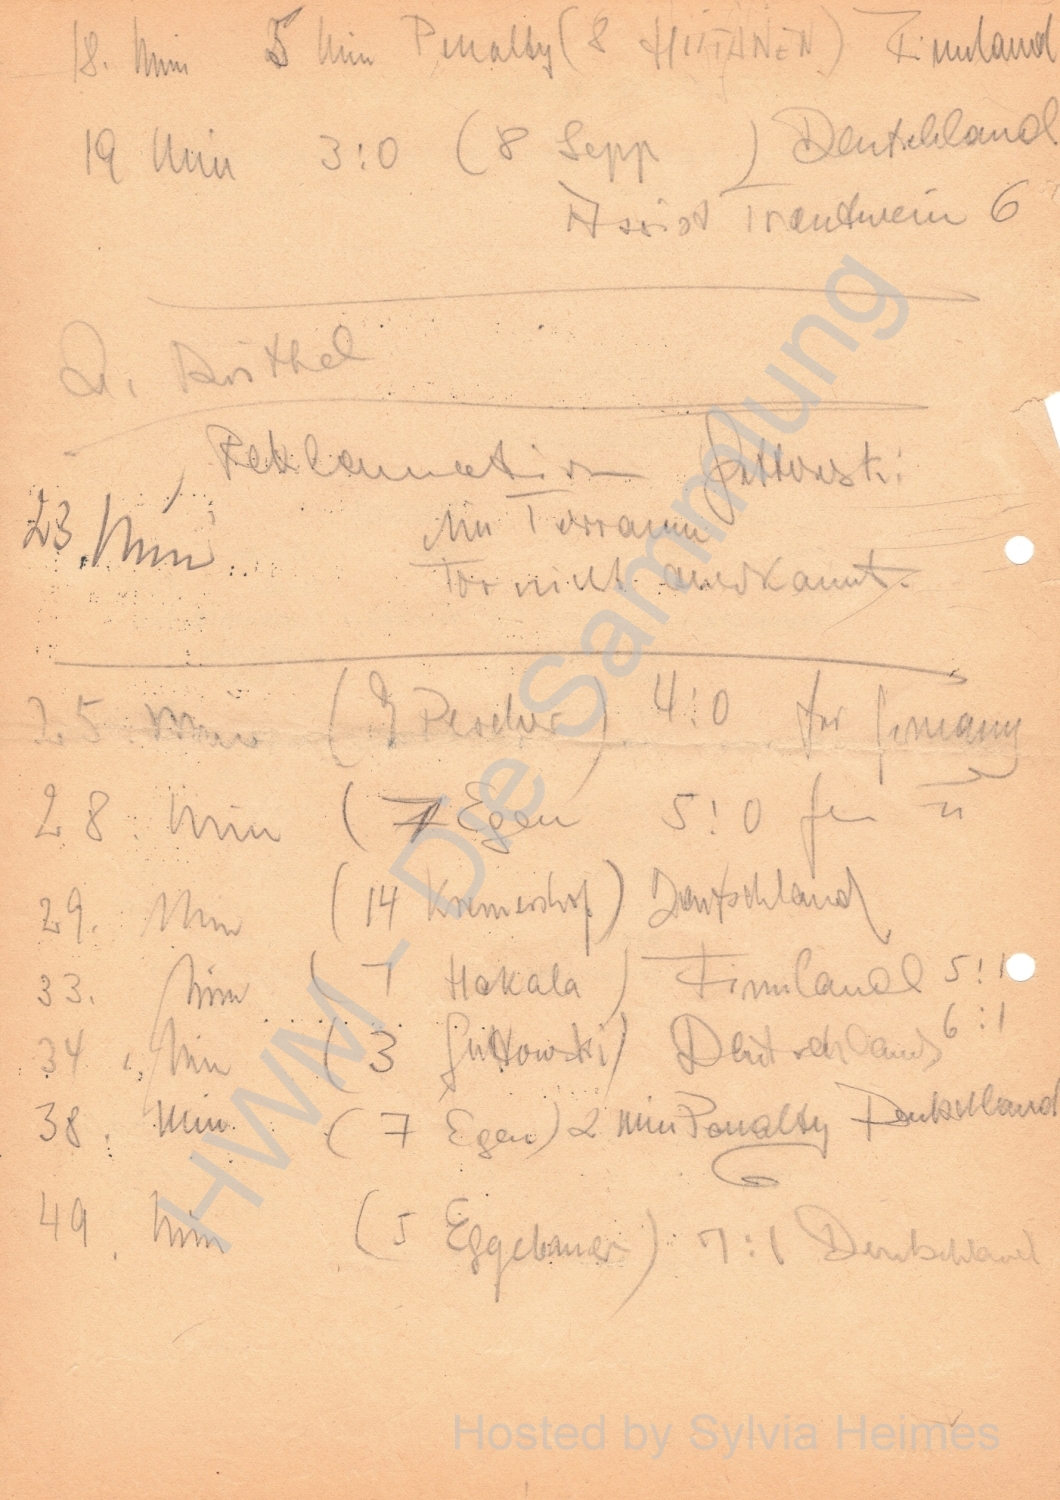 18. Min 5 Min Penalty (8 HIITANEN) Finnland
19 Min 3:0 (8 Sepp ) Deutschland
Assist Trautwein 6
Reklamation Guttowski
23. Min im Torraum
Tor nicht anerkannt.
25. Min (9 Pescher) 4:0 for Germany
28. Min (7 Egen 5:0 for "
29. Min (14 Kremershof) Deutschland
33. Min ( 7 Hakala ) Finnland 5:1
34. Min (3 Guttowski) Deutschland 6:1
38. Min (7 Egen) 2 Min Penalty Deutschland
49. Min (5 Eggebauer) 7:1 Deutschland
HWM - Die Sammlung
Hosted by Sylvia Heimes